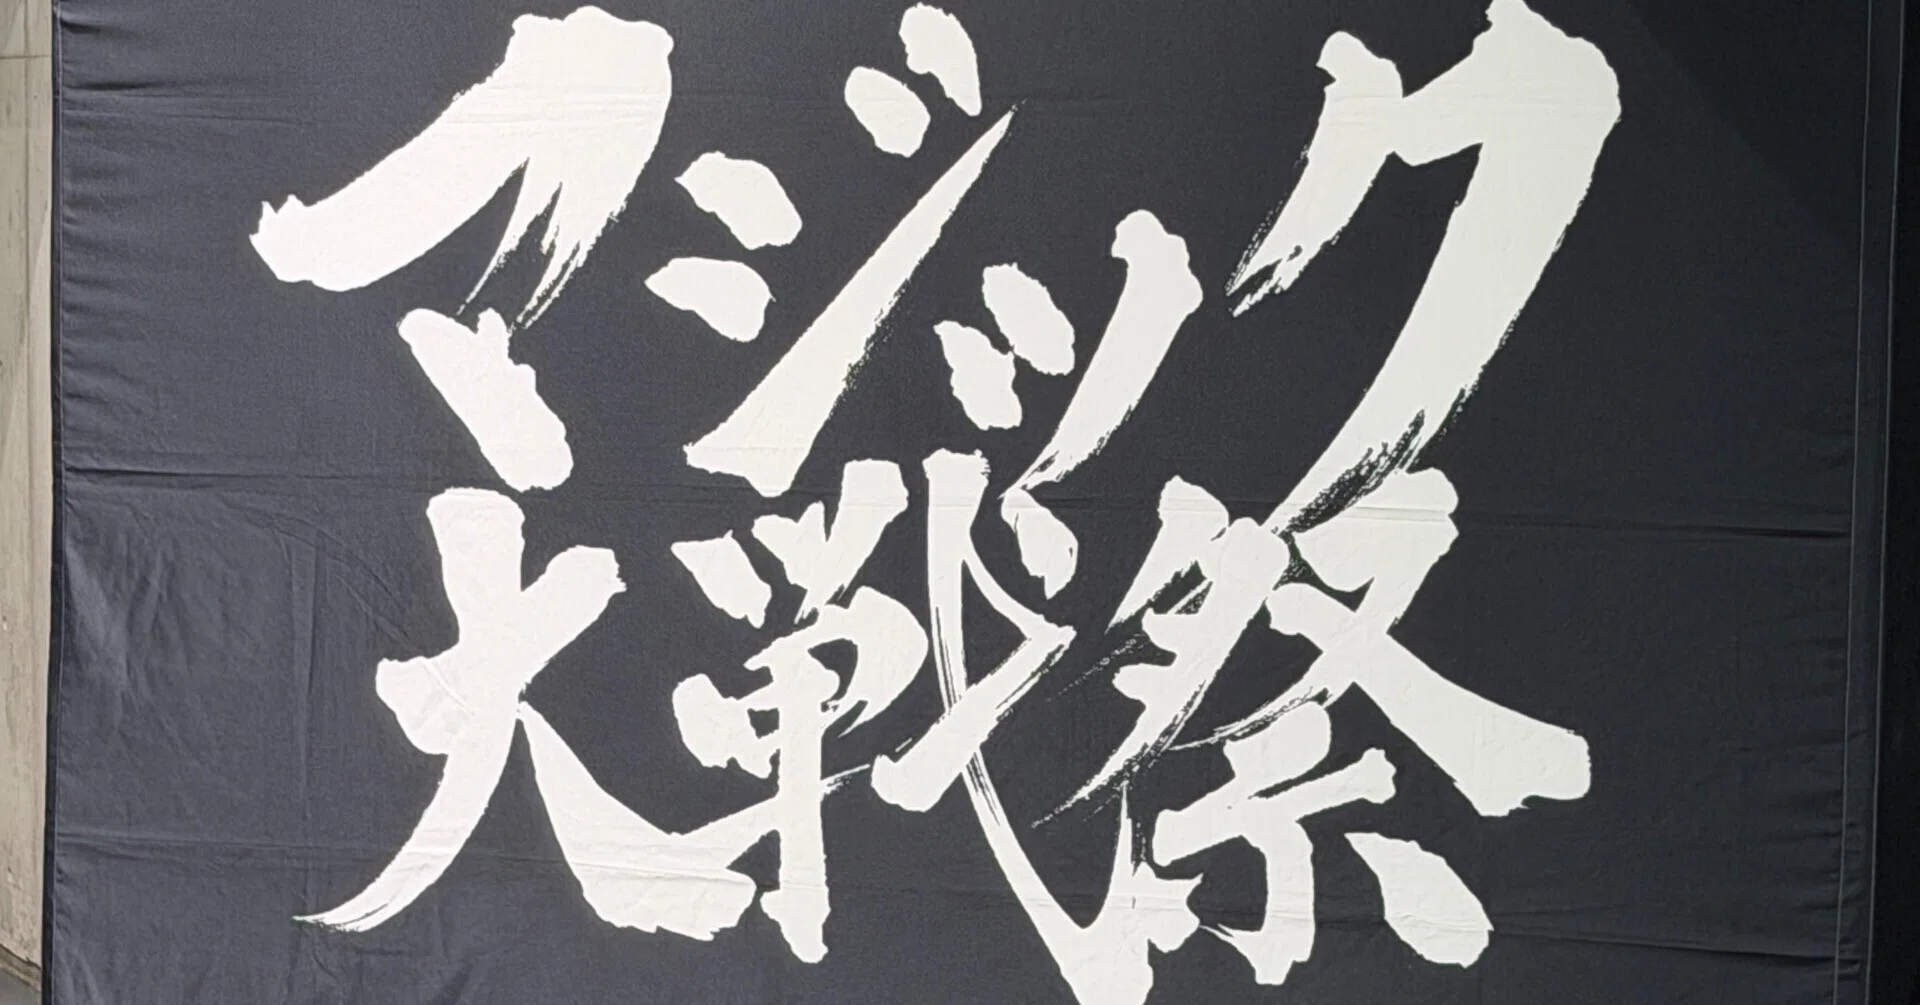 マジック
大戦祭